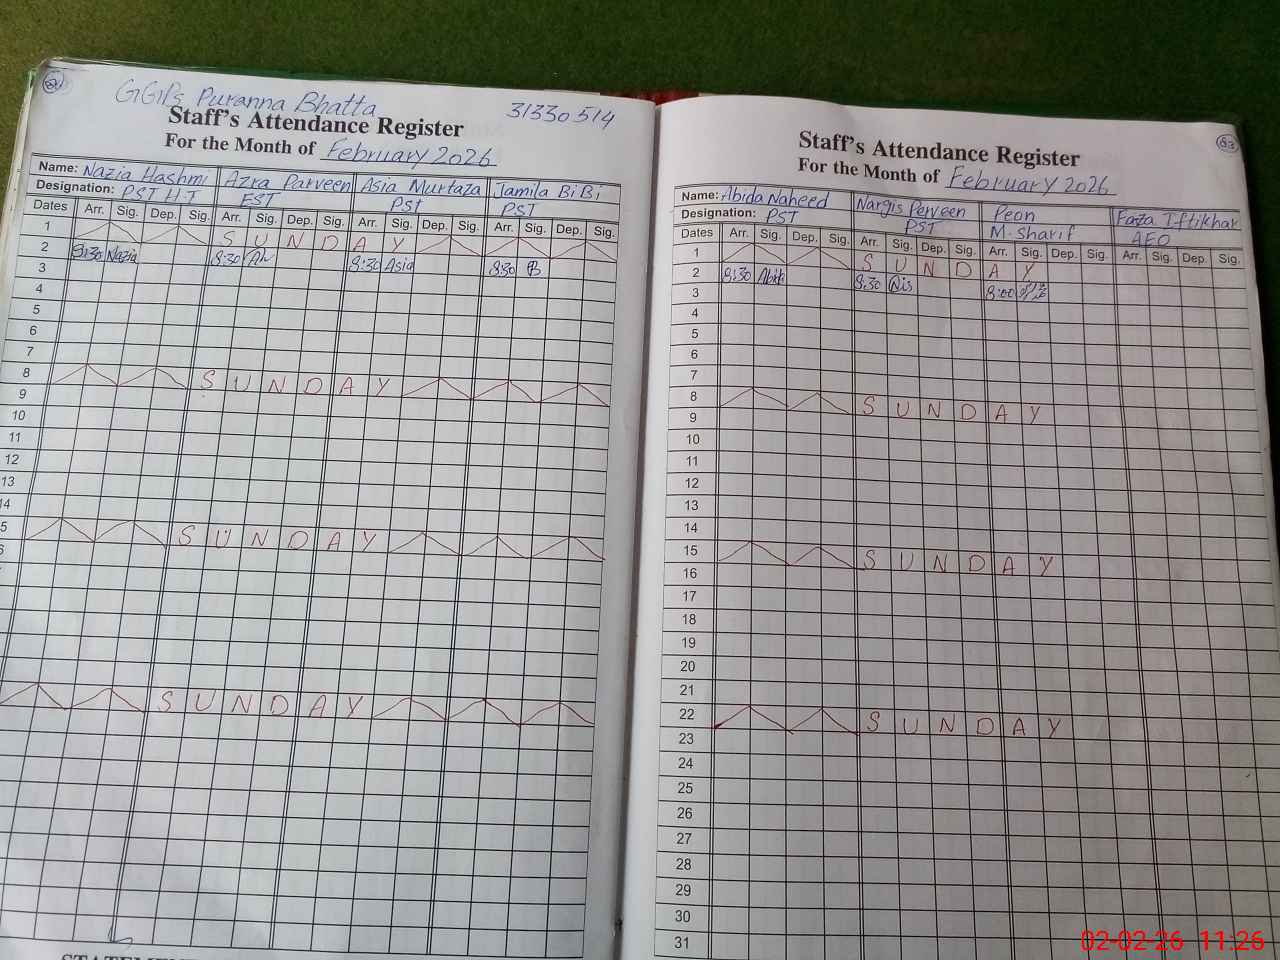 GGPS Puranna Bhatta 31330514
Staff's Attendance Register
For the Month of February 2026
Name: Nazia Hashmi Azra Parveen Asia Murtaza Jamila BiBi
Designation: PST H.T EST PST PST
Dates Arr. Sig. Dep. Sig. Arr. Sig. Dep. Sig. Arr. Sig. Dep. Sig. Arr. Sig. Dep. Sig.
1 SUNDAY
2 8:30 Nazia 8:30 8:30 Asia 8:30
3
4
5
6
7
8 SUNDAY
9
10
11
12
13
14
5 SUNDAY
6
SUNDAY
83
Staff's Attendance Register
For the Month of February 2026
Name: Abida Naheed Nargis Perveen Peon Faiza Iftikhar
Designation: PST PST M. Sharif AEO
Dates Arr. Sig. Dep. Sig. Arr. Sig. Dep. Sig. Arr. Sig. Dep. Sig. Arr. Sig. Dep. Sig.
1 SUNDAY
2 8:30 8:30 8:00
3
4
5
6
7
8 SUNDAY
9
10
11
12
13
14
15 SUNDAY
16
17
18
19
20
21
22 SUNDAY
23
24
25
26
27
28
29
30
31
02-02-26 11:26